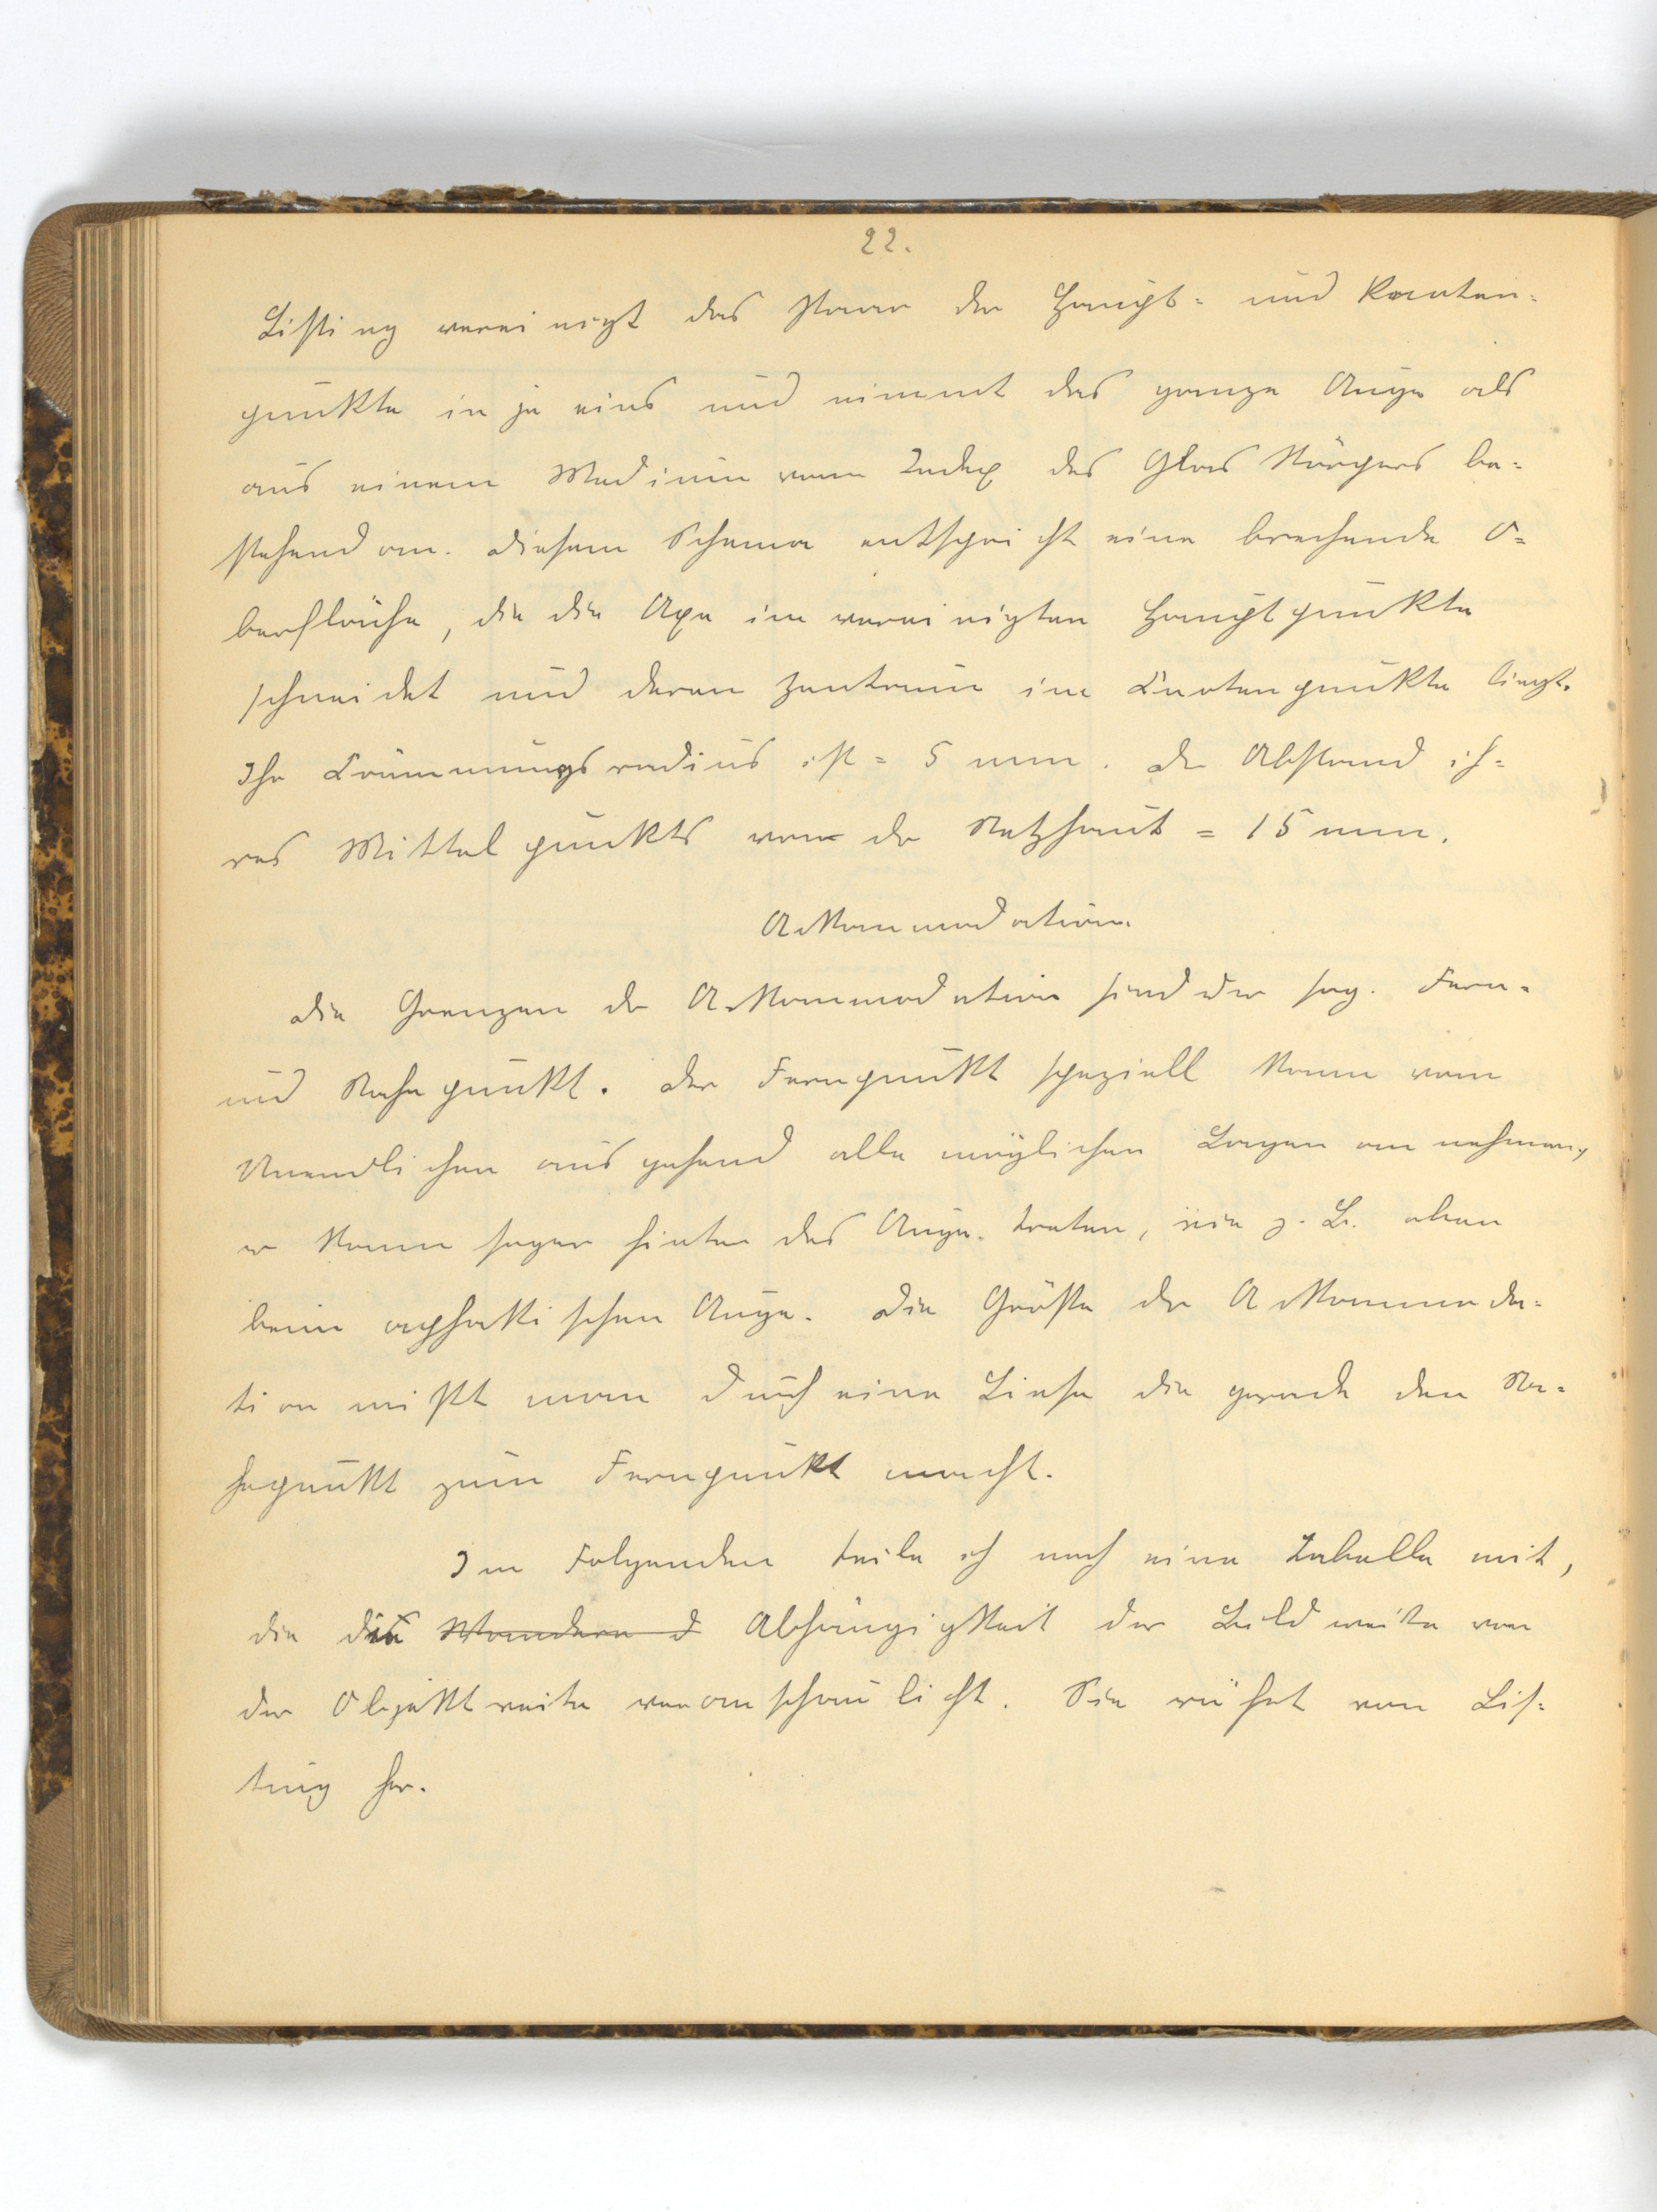 22.
Listing vereinigt das Paar der Haupt- und Knoten-
punkte in je eins und nimmt das ganze Auge als
aus einem Medium vom Index des Glas Körpers be-
stehend an. Diesem Schema entspricht eine brechende O-
berfläche, die die Axe im vereinigten Hauptpunkte
schneidet und deren Zentrum im Knotenpunkte liegt.
Ihr Krümmungsradius ist = 5 mm. Der Abstand ih-
res Mittelpunkts von der Netzhaut = 15 mm.
Akkommodation.
Die Grenzen der Akkommodation sind der sog. Fern-
und Nahepunkt. Der Fernpunkt speziell kann vom
Unendlichen ausgehend alle möglichen Lagen annehmen,
er kann sogar hinter das Auge treten, wie z. B. eben
beim aphakischen Auge. Die Größe der Akkommoda-
tion mißt man durch eine Linse die gerade den Na-
hepunkt zum Fernpunkt macht.
Im Folgenden teile ich noch eine Tabelle mit,
die die Wandern d Abhängigkeit der Bildweite von
der Objektweite veranschaulicht. Sie rührt von Lis-
ting her.